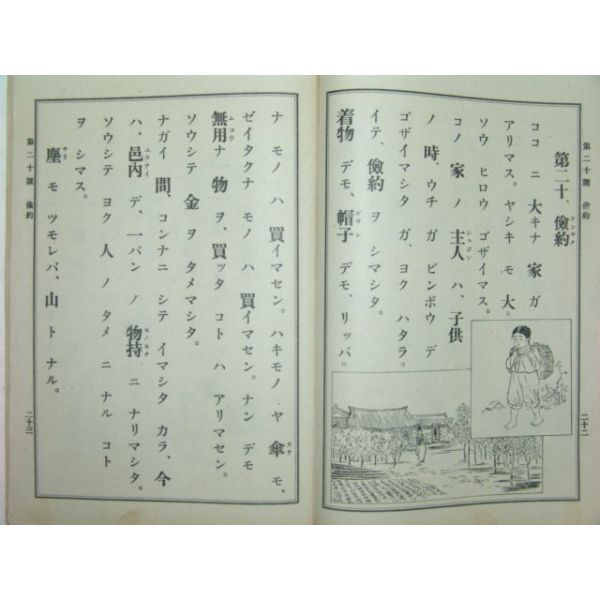 第二十課 儉約
第二十、儉約
ココ ニ 大キナ 家 ガ
アリマス。ヤシキ モ 大
ソウ ヒロウ ゴザイマス。
コノ 家 ノ 主人 ハ、子供
ノ 時、ウチ ガ ビンボウ デ
ゴザイマシタ ガ、ヨク ハタラ
イテ、儉約 ヲ シマシタ。
着物 デモ、帽子 デモ、リッパ
二十二
ナ モノ ハ 買イマセン。ハキモノ ヤ 傘 モ、
ゼイタクナ モノ ハ 買イマセン。ナン デモ
無用ナ 物 ヲ、買ッタ コト ハ アリマセン。
ソウシテ 金 ヲ タメマシタ。
ナガイ 間、コンナニ シテ イマシタ カラ、今
ハ、邑内 デ、一バン ノ 物持 ニ ナリマシタ。
ソウシテ ヨク 人 ノ タメ ニ ナル コト
ヲ シマス。
塵 モ ツモレバ、山 ト ナル。
第二十課 儉約
二十三